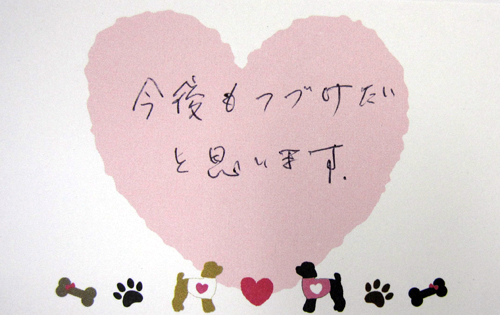 今後もつづけたい
と思います.